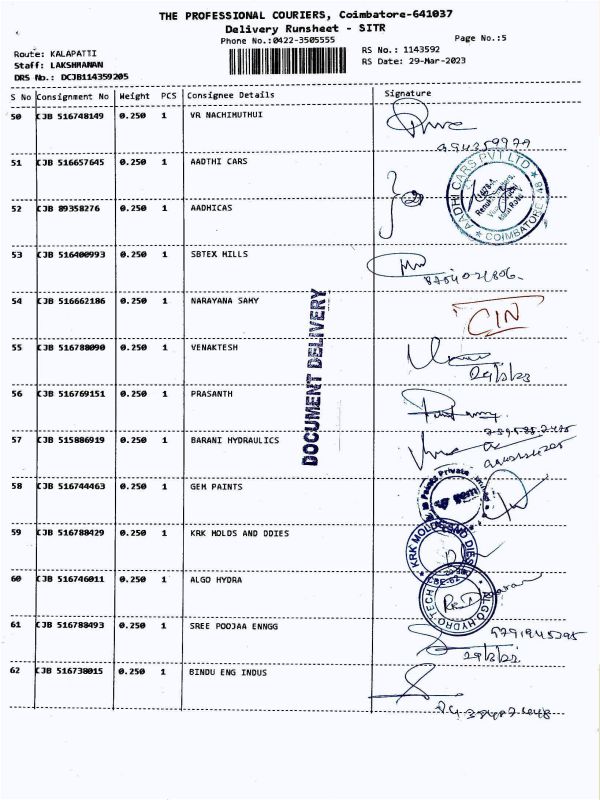 THE PROFESSIONAL COURIERS, Coimbatore-641037
Delivery Runsheet - SITR
Phone No.:0422-3505555
Page No.:5
Route: KALAPATTI
RS No.: 1143592
Staff: LAKSHMANAN
RS Date: 29-Mar-2023
DRS No.: DCJB114359205
S No Consignment No Weight PCS Consignee Details Signature
50 CJB 516748149 0.250 1 VR NACHIMUTHUI
51 CJB 516657645 0.250 1 AADTHI CARS
AADHI CARS PVT LTD
COIMBATORE
52 CJB 89358276 0.250 1 AADHICAS
53 CJB 516400993 0.250 1 SBTEX HILLS
54 CJB 516662186 0.250 1 NARAYANA SAMY
CIN
DOCUMENT DELIVERY
55 CJB 516788090 0.250 1 VENAKTESH
29/3/23
56 CJB 516769151 0.250 1 PRASANTH
57 CJB 515886919 0.250 1 BARANI HYDRAULICS
58 CJB 516744463 0.250 1 GEM PAINTS
gem
59 CJB 516788429 0.250 1 KRK MOLDS AND DDIES
KRK MOLDS AND DIES
60 CJB 516746011 0.250 1 ALGO HYDRA
ALGO HYDRO TECH
61 CJB 516788493 0.250 1 SREE POOJAA ENNGG
62 CJB 516738015 0.250 1 BINDU ENG INDUS